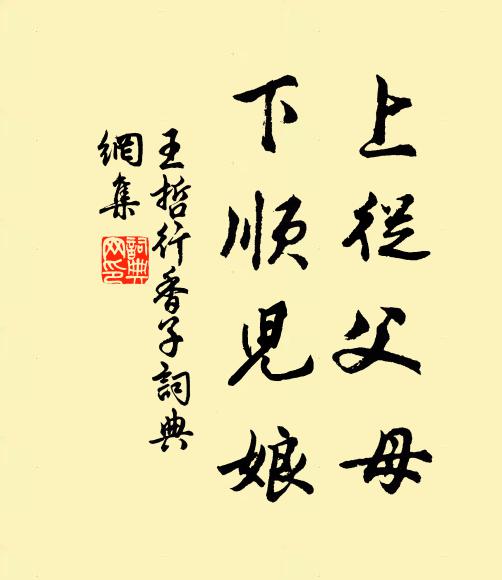 上從父母
下順兒娘
王哲行香子詞典
網集
詞典
网印